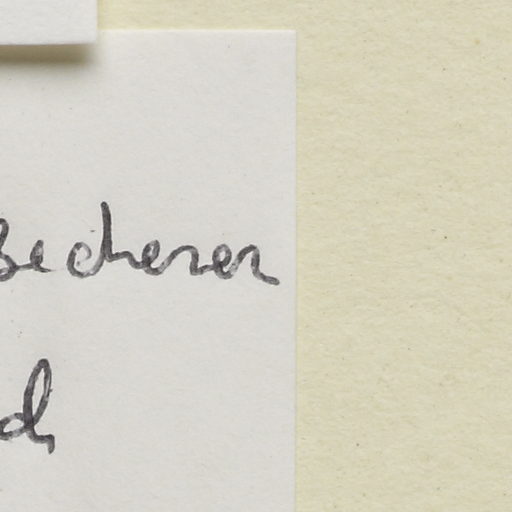 Becherer
d